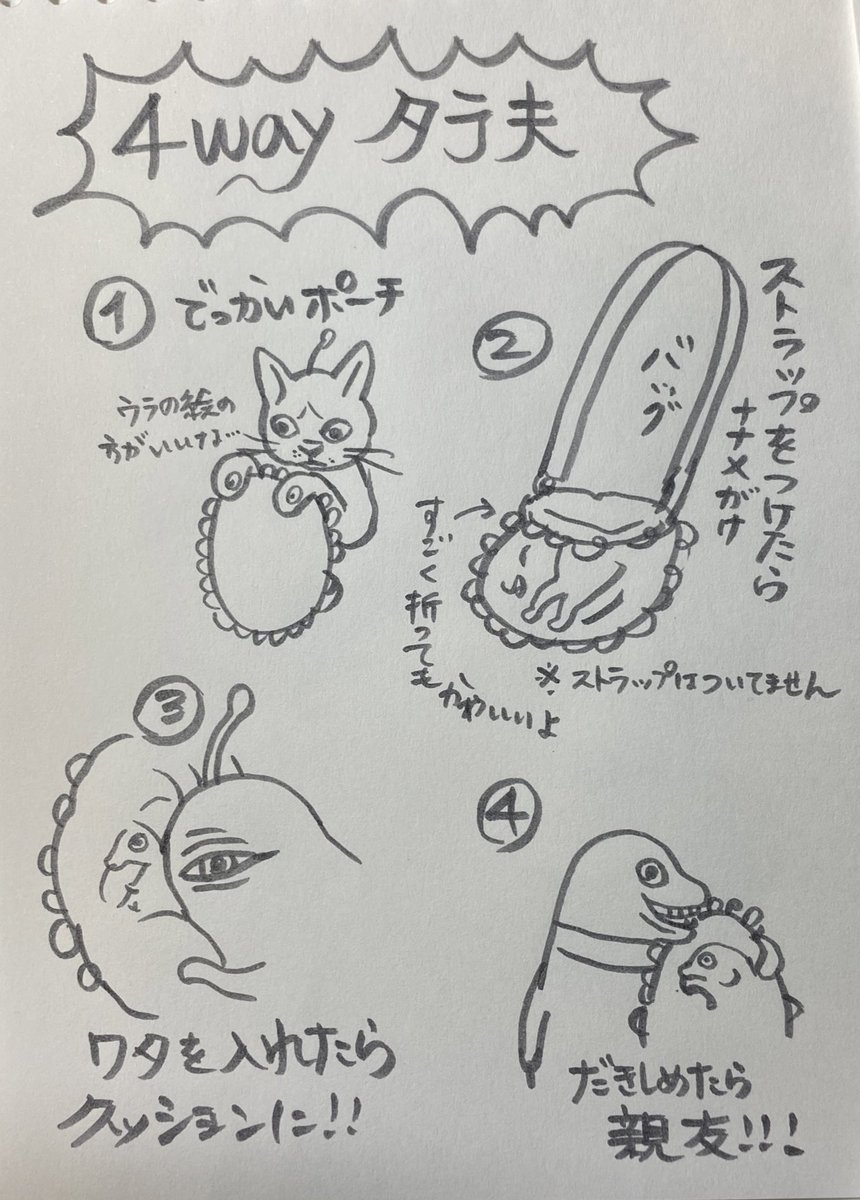 4way タラ夫
① でっかいポーチ
ウラの絵の
方がいいけな…
②
バッグ
ストラップをつけたら
ナナメがけ
すごく折っても
かわいいよ
※ストラップはついてません
③
ワタを入れたら
クッションに!!
④
だきしめたら
親友!!!